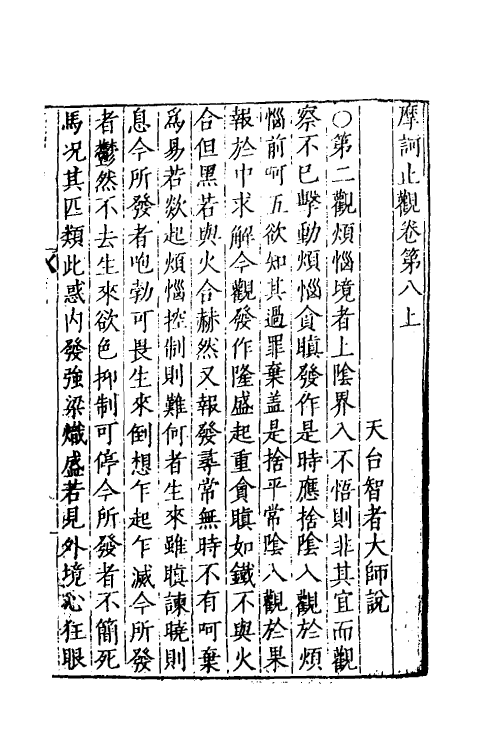 摩訶止觀卷第八上
天台智者大師說
○第二觀煩惱境者上陰界入不悟則非其宜而觀
察不已擊動煩惱貪瞋發作是時應捨陰入觀於煩
惱前呵五欲知其過罪棄盖是捨平常陰入觀於果
報於中求解今觀發作隆盛起重貪瞋如鐵不與火
合但黑若與火合赫然又報發尋常無時不有呵棄
爲易若欻起煩惱控制則難何者生來雖瞋諫曉則
息今所發者咆勃可畏生來倒想乍起乍滅今所發
者鬱然不去生來欲色抑制可停今所發者不簡死
馬况其匹類此惑内發強梁熾盛若見外境心狂眼